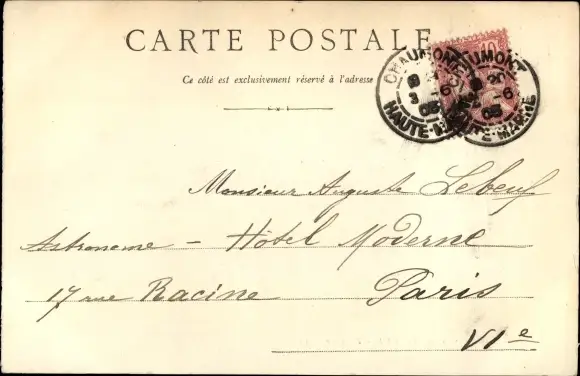 CARTE POSTALE
Ce côté est exclusivement réservé à l'adresse
CHAUMONT
HAUTE-MARNE
CHAUMONT
HAUTE-MARNE
10
Monsieur Auguste Lebeuf
Astronome – Hôtel Moderne
17 rue Racine Paris
VIe